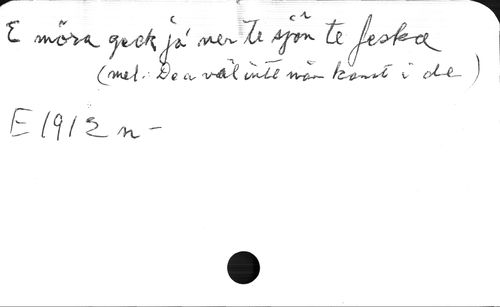 E möra geck já ner te sjön te feska
(mel. De a väl inte nån konst i de)
E 1912 n -